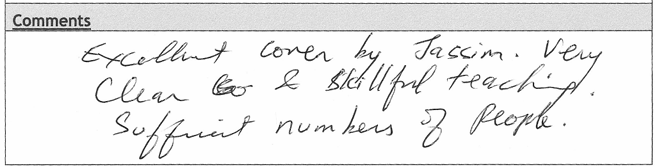 Comments
Excellent cover by Jassim. Very
Clear & skillful teaching.
Sufficient numbers of people.